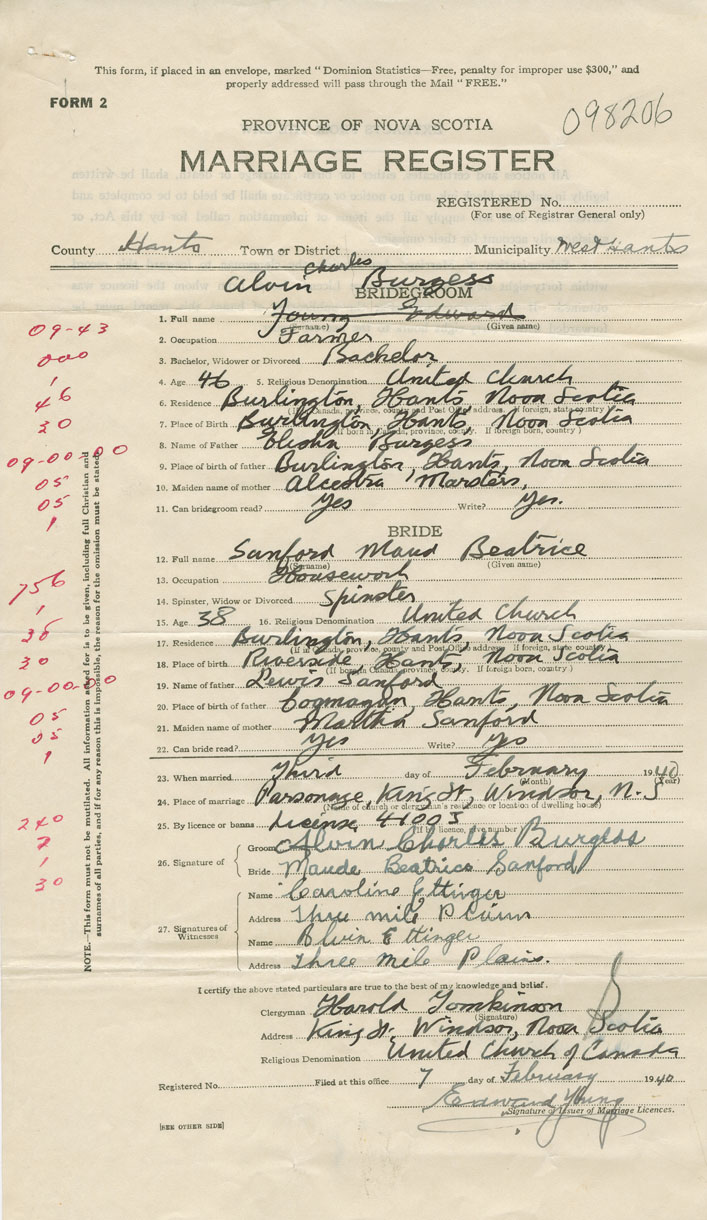 This form, if placed in an envelope, marked "Dominion Statistics—Free, penalty for improper use $300," and
properly addressed will pass through the Mail "FREE."
FORM 2
098206
PROVINCE OF NOVA SCOTIA
MARRIAGE REGISTER
REGISTERED No.
(For use of Registrar General only)
County Hants Town or District Municipality West Hants
Charles
Alvin Burgess
BRIDEGROOM
1. Full name Young Edward
(Surname) (Given name)
2. Occupation Farmer
3. Bachelor, Widower or Divorced Bachelor
4. Age 46 5. Religious Denomination United Church
6. Residence Burlington, Hants, Nova Scotia
(If in Canada, province, county and Post Office address. If foreign, state country)
7. Place of Birth Burlington, Hants, Nova Scotia
(If born in Canada, province, county. If foreign born, country)
8. Name of Father Elisha Burgess
9. Place of birth of father Burlington, Hants, Nova Scotia
10. Maiden name of mother Marsters,
11. Can bridegroom read? Yes Write? Yes.
BRIDE
12. Full name Sanford Maud Beatrice
(Surname) (Given name)
13. Occupation Housework
14. Spinster, Widow or Divorced Spinster
15. Age 38 16. Religious Denomination United Church
17. Residence Burlington, Hants, Nova Scotia
(If in Canada, province, county and Post Office address. If foreign, state country)
18. Place of birth Riverside, Hants, Nova Scotia
(If born in Canada, province, county. If foreign born, country)
19. Name of father Lewis Sanford
20. Place of birth of father Cogmagun, Hants, Nova Scotia
21. Maiden name of mother Martha Sanford
22. Can bride read? Yes Write? Yes
23. When married Third day of February 1940
(Month) (Year)
24. Place of marriage Parsonage, King St, Windsor, N.S
(Name of church or clergyman's residence or location of dwelling house)
25. By licence or banns License 41005
(If by licence, give number)
26. Signature of
Groom Alvin Charles Burgess
Bride Maude Beatrice Sanford
27. Signatures of Witnesses
Name Caroline Ettinger
Address Three mile Plains
Name Alvin Ettinger
Address Three mile Plains.
I certify the above stated particulars are true to the best of my knowledge and belief.
Clergyman Harold Tomkinson
(Signature)
Address King St, Windsor, Nova Scotia
Religious Denomination United Church of Canada
Registered No. Filed at this office 7 day of February 1940
Edward Young
Signature of Issuer of Marriage Licences.
[SEE OTHER SIDE]
NOTE.—This form must not be mutilated. All information asked for is to be given, including full Christian and
surnames of all parties, and if for any reason this is impossible, the reason for the omission must be stated.
09-43
000
1
46
30
09-00-00
05
05
1
756
1
38
30
09-00-00
05
05
1
240
7
1
30